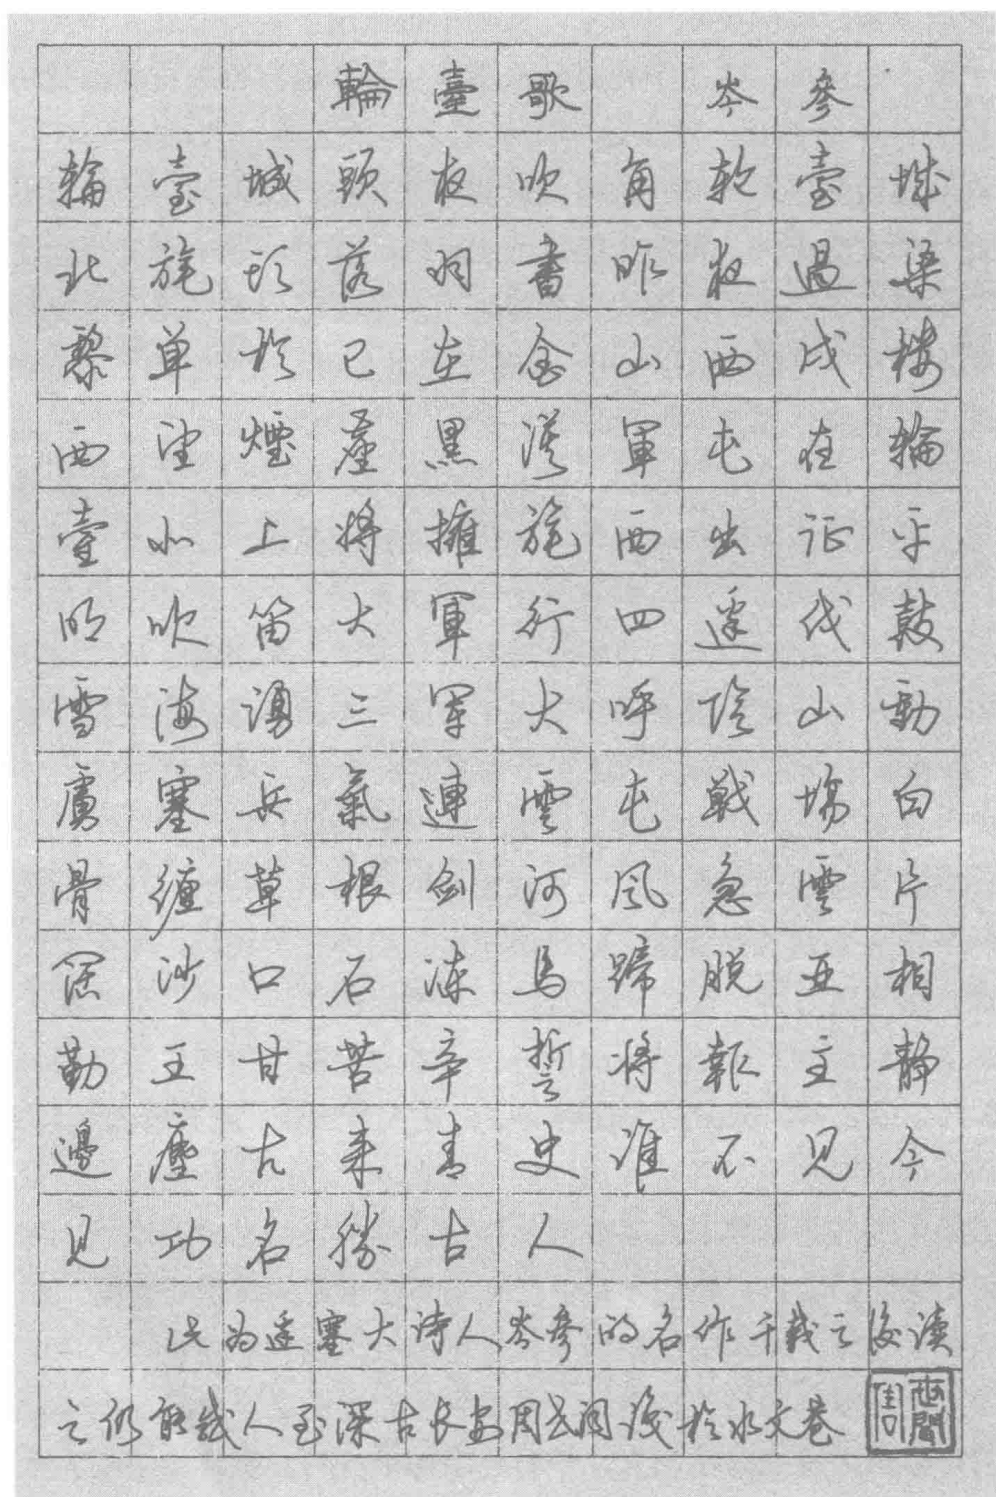 輪臺歌 岑參
輪臺城頭夜吹角輪臺城
北旄頭落羽書昨夜過渠
黎單於已在金山西戍樓
西望煙塵黑漢軍屯在輪
臺北上將擁旄西出征平
明吹笛大軍行四邊伐鼓
雪海湧三軍大呼陰山動
虜塞兵氣連雲屯戰場白
骨纏草根劍河風急雲片
闊沙口石凍馬蹄脫亞相
勤王甘苦辛誓將報主靜
邊塵古来青史誰不見今
見功名勝古人
此为邊塞大诗人岑參的名作千载之後读
之仍能感人至深古长安周世闻後於水文巷